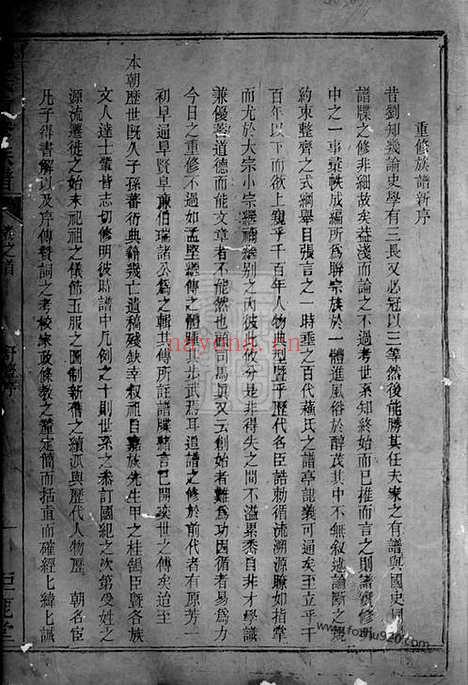 重修族譜新序
昔劉知幾論史學有三長又必冠以三等然後能勝其任夫家之有譜與國史同
譜牒之修非細故矣益淺而論之不過考世系知終始而已推而言之則諸賢修明
中之一事葉帙成編所為聯宗族於一體進風俗於醇茂其中不無敘述論斷之
約束整齊之式綱舉目張言之一時垂之百代蘓氏之譜亭龍義可通矣至立乎千
百年以下而欲上窺乎千百年人物典型暨乎歷代名臣誥勅循流溯源瞭如指掌
而尤於大宗小宗繼禰繼別之內彼此攸分是非得失之間不溢累黍自非才學識
兼優蓄道德而能文章者不能然也雖
馬眞又云創始者難為功因循者易為力
今日之重修不過如孟堅繼傳之體
步武焉耳道譜之修於前代者有原芳一
和早遍早賢早康伯瑞諸公為之輯其傳所註譜牒緒言已開來世之傳矣迨至
本朝歷世既久子孫蕃衍典籍幾亡遺稿殘缺幸叔祖自嘉族先生甲之桂鵠臣暨各族
文人達士輩皆志切修明彼時譜中凡例之十則世系之黍訂國紀之次第受姓之
源流遷徙之始末祀祖之儀節五服之圖制新舊之續派與歷代人物歷 朝名宦
凡子得書解以及序傳贊詞之考核家政條教之釐定簡而括重而確經上緯上誠
卷之首
巨鹿堂
nayona.cn
www.foshu920.com